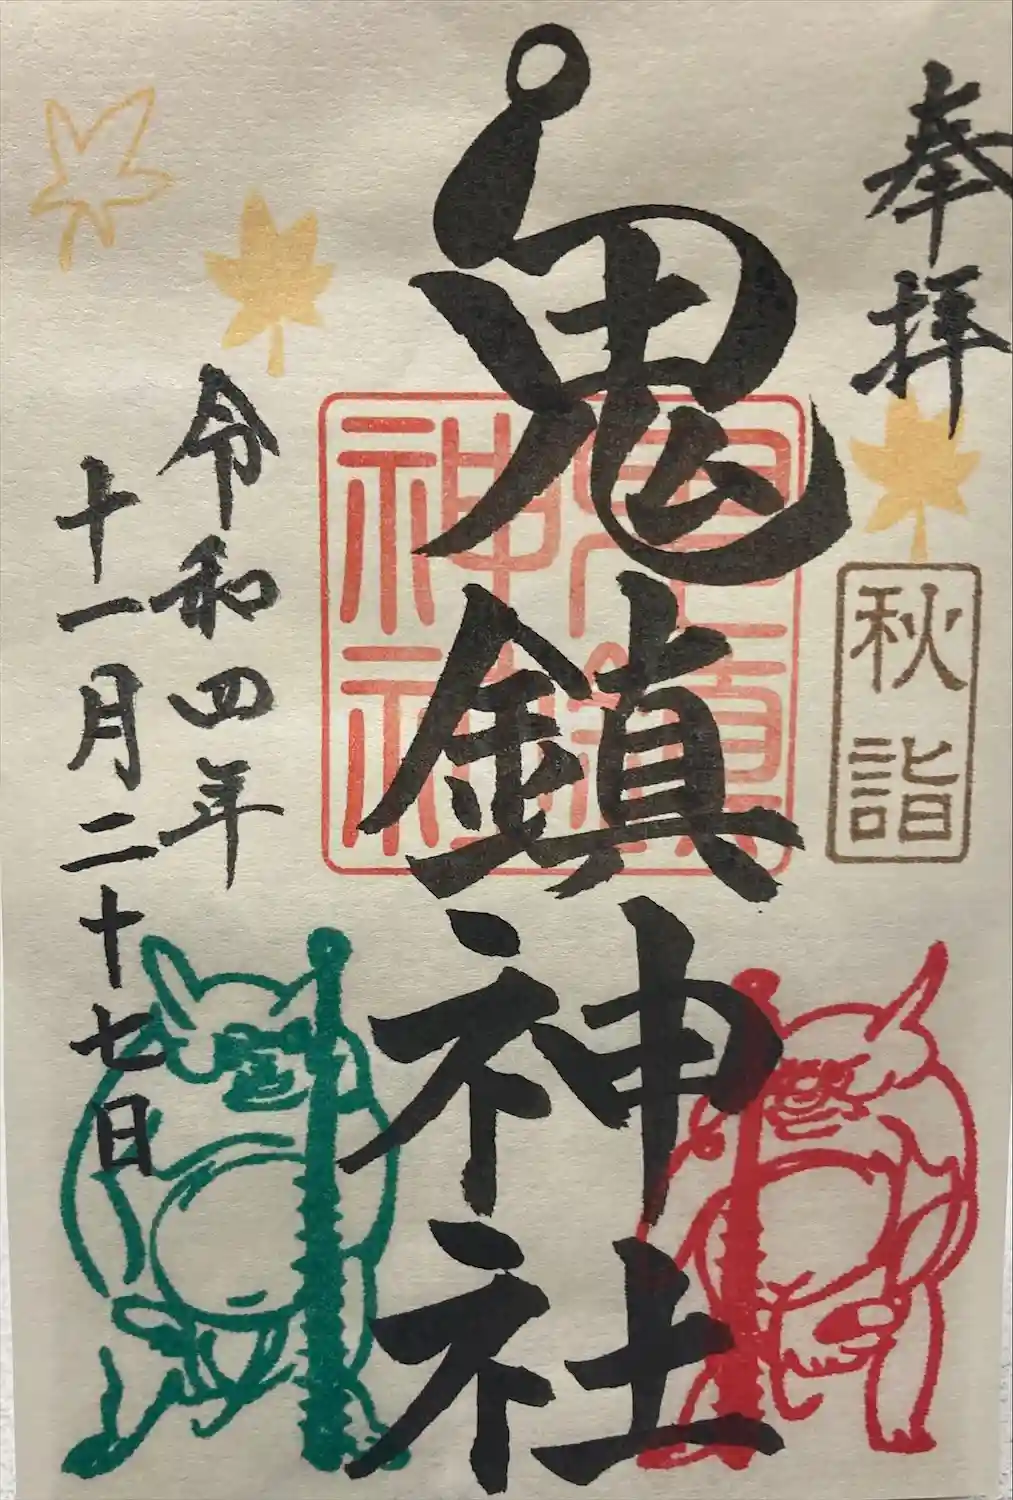 奉拝
秋詣
鬼鎮神社
鬼鎮
神社
令和四年
十一月二十七日